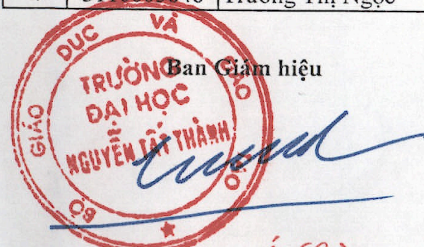 Trương Thị Ngọc
Ban Giám hiệu
BỘ GIÁO DỤC VÀ ĐÀO TẠO
TRƯỜNG
ĐẠI HỌC
NGUYỄN TẤT THÀNH